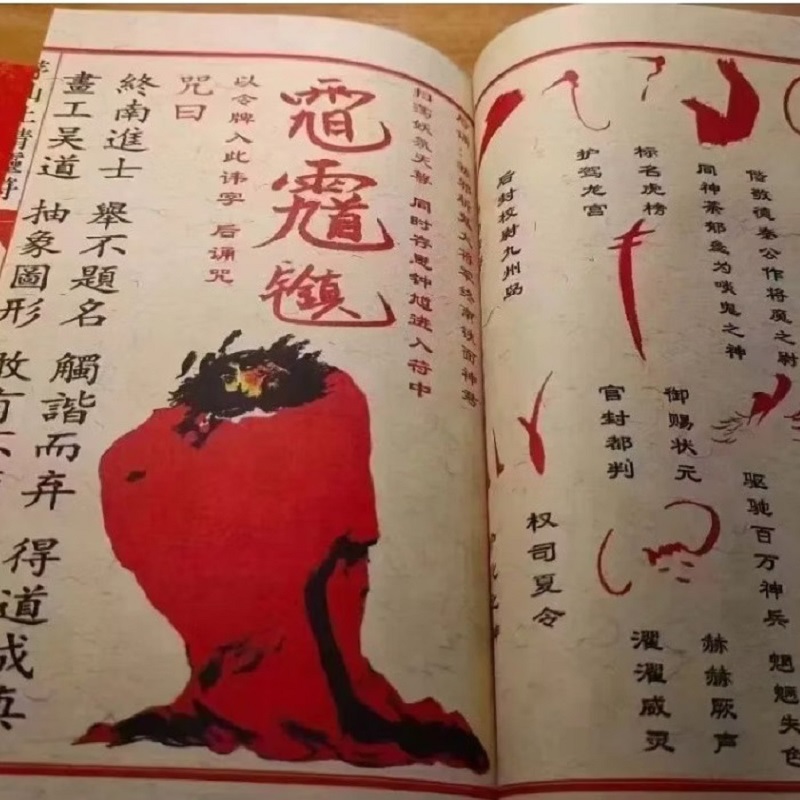 偕敬德秦公作将魔之尉
同神荼郁垒为啖鬼之神
标名虎榜
护驾龙宫
后封校尉九州岛
驱驰百万神兵
御赐状元
官封都判
权司夏令
魍魉失色
赫赫厥声
濯濯威灵
斩鬼大将军终南铁面神君
扫荡妖氛天尊 同时存思钟馗进入符中
以令牌入此讳字 后诵咒
咒曰
終南進士 舉不題名 觸諧而弃 得道成真
畫工吴道 抽象圖形
山上清